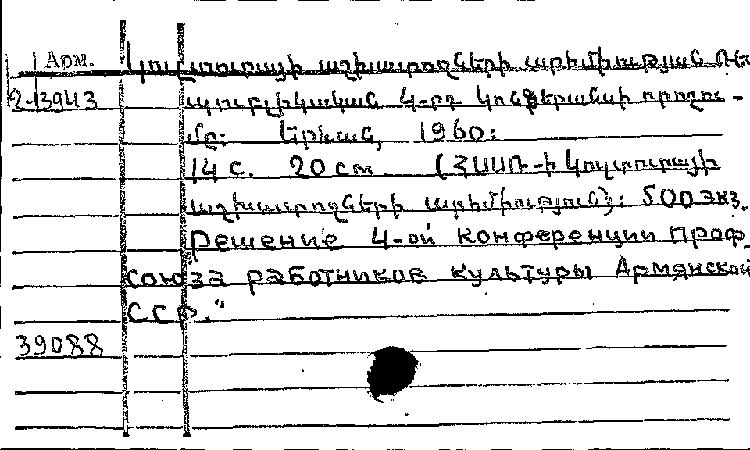 Арм.
Կուլտուրայի աշխատողների արհմիության Ռես
2-13943
պուբլիկական 4-րդ կոնֆերանսի որոշու-
մը: Երևան, 1960:
14 с. 20 см (ՀՍՍՌ-ի կուլտուրայի
աշխատողների արհմիություն): 500 экз.
Решение 4-ой конференции проф.
союза работников культуры Армянской
ССР."
39088